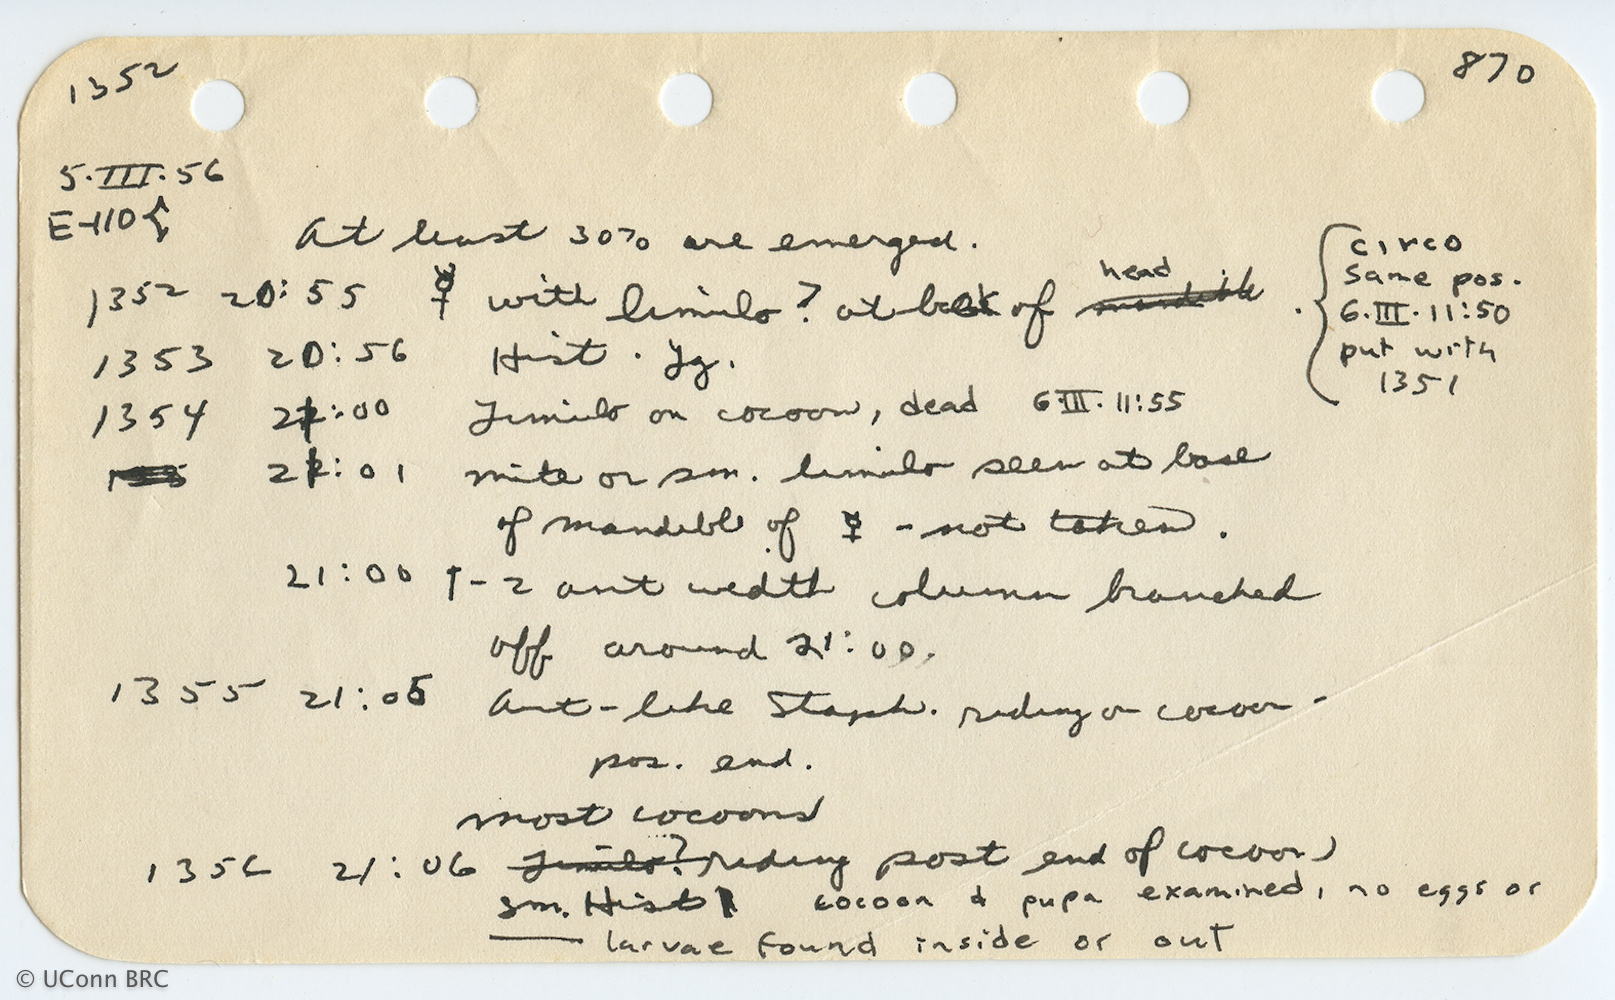 1352
870
5.III.56
E-110
At least 30% are emerged.
1352 20:55 ☿ with limulo? at back of head
circo
same pos.
6.III.11:50
put with
1351
1353 20:56 Hist. Yg.
1354 21:00 Limulo on cocoon, dead 6.III.11:55
21:01 mite or sm. limulo seen at base
of mandible of ☿ - not taken.
21:00 1-2 ant width column branched
off around 21:00.
1355 21:05 Ant-like Staph. riding on cocoon -
pos. end.
most cocoons
1356 21:06 Limulo? riding post end of cocoon
sm. Hist cocoon & pupa examined, no eggs or
larvae found inside or out
© UConn BRC